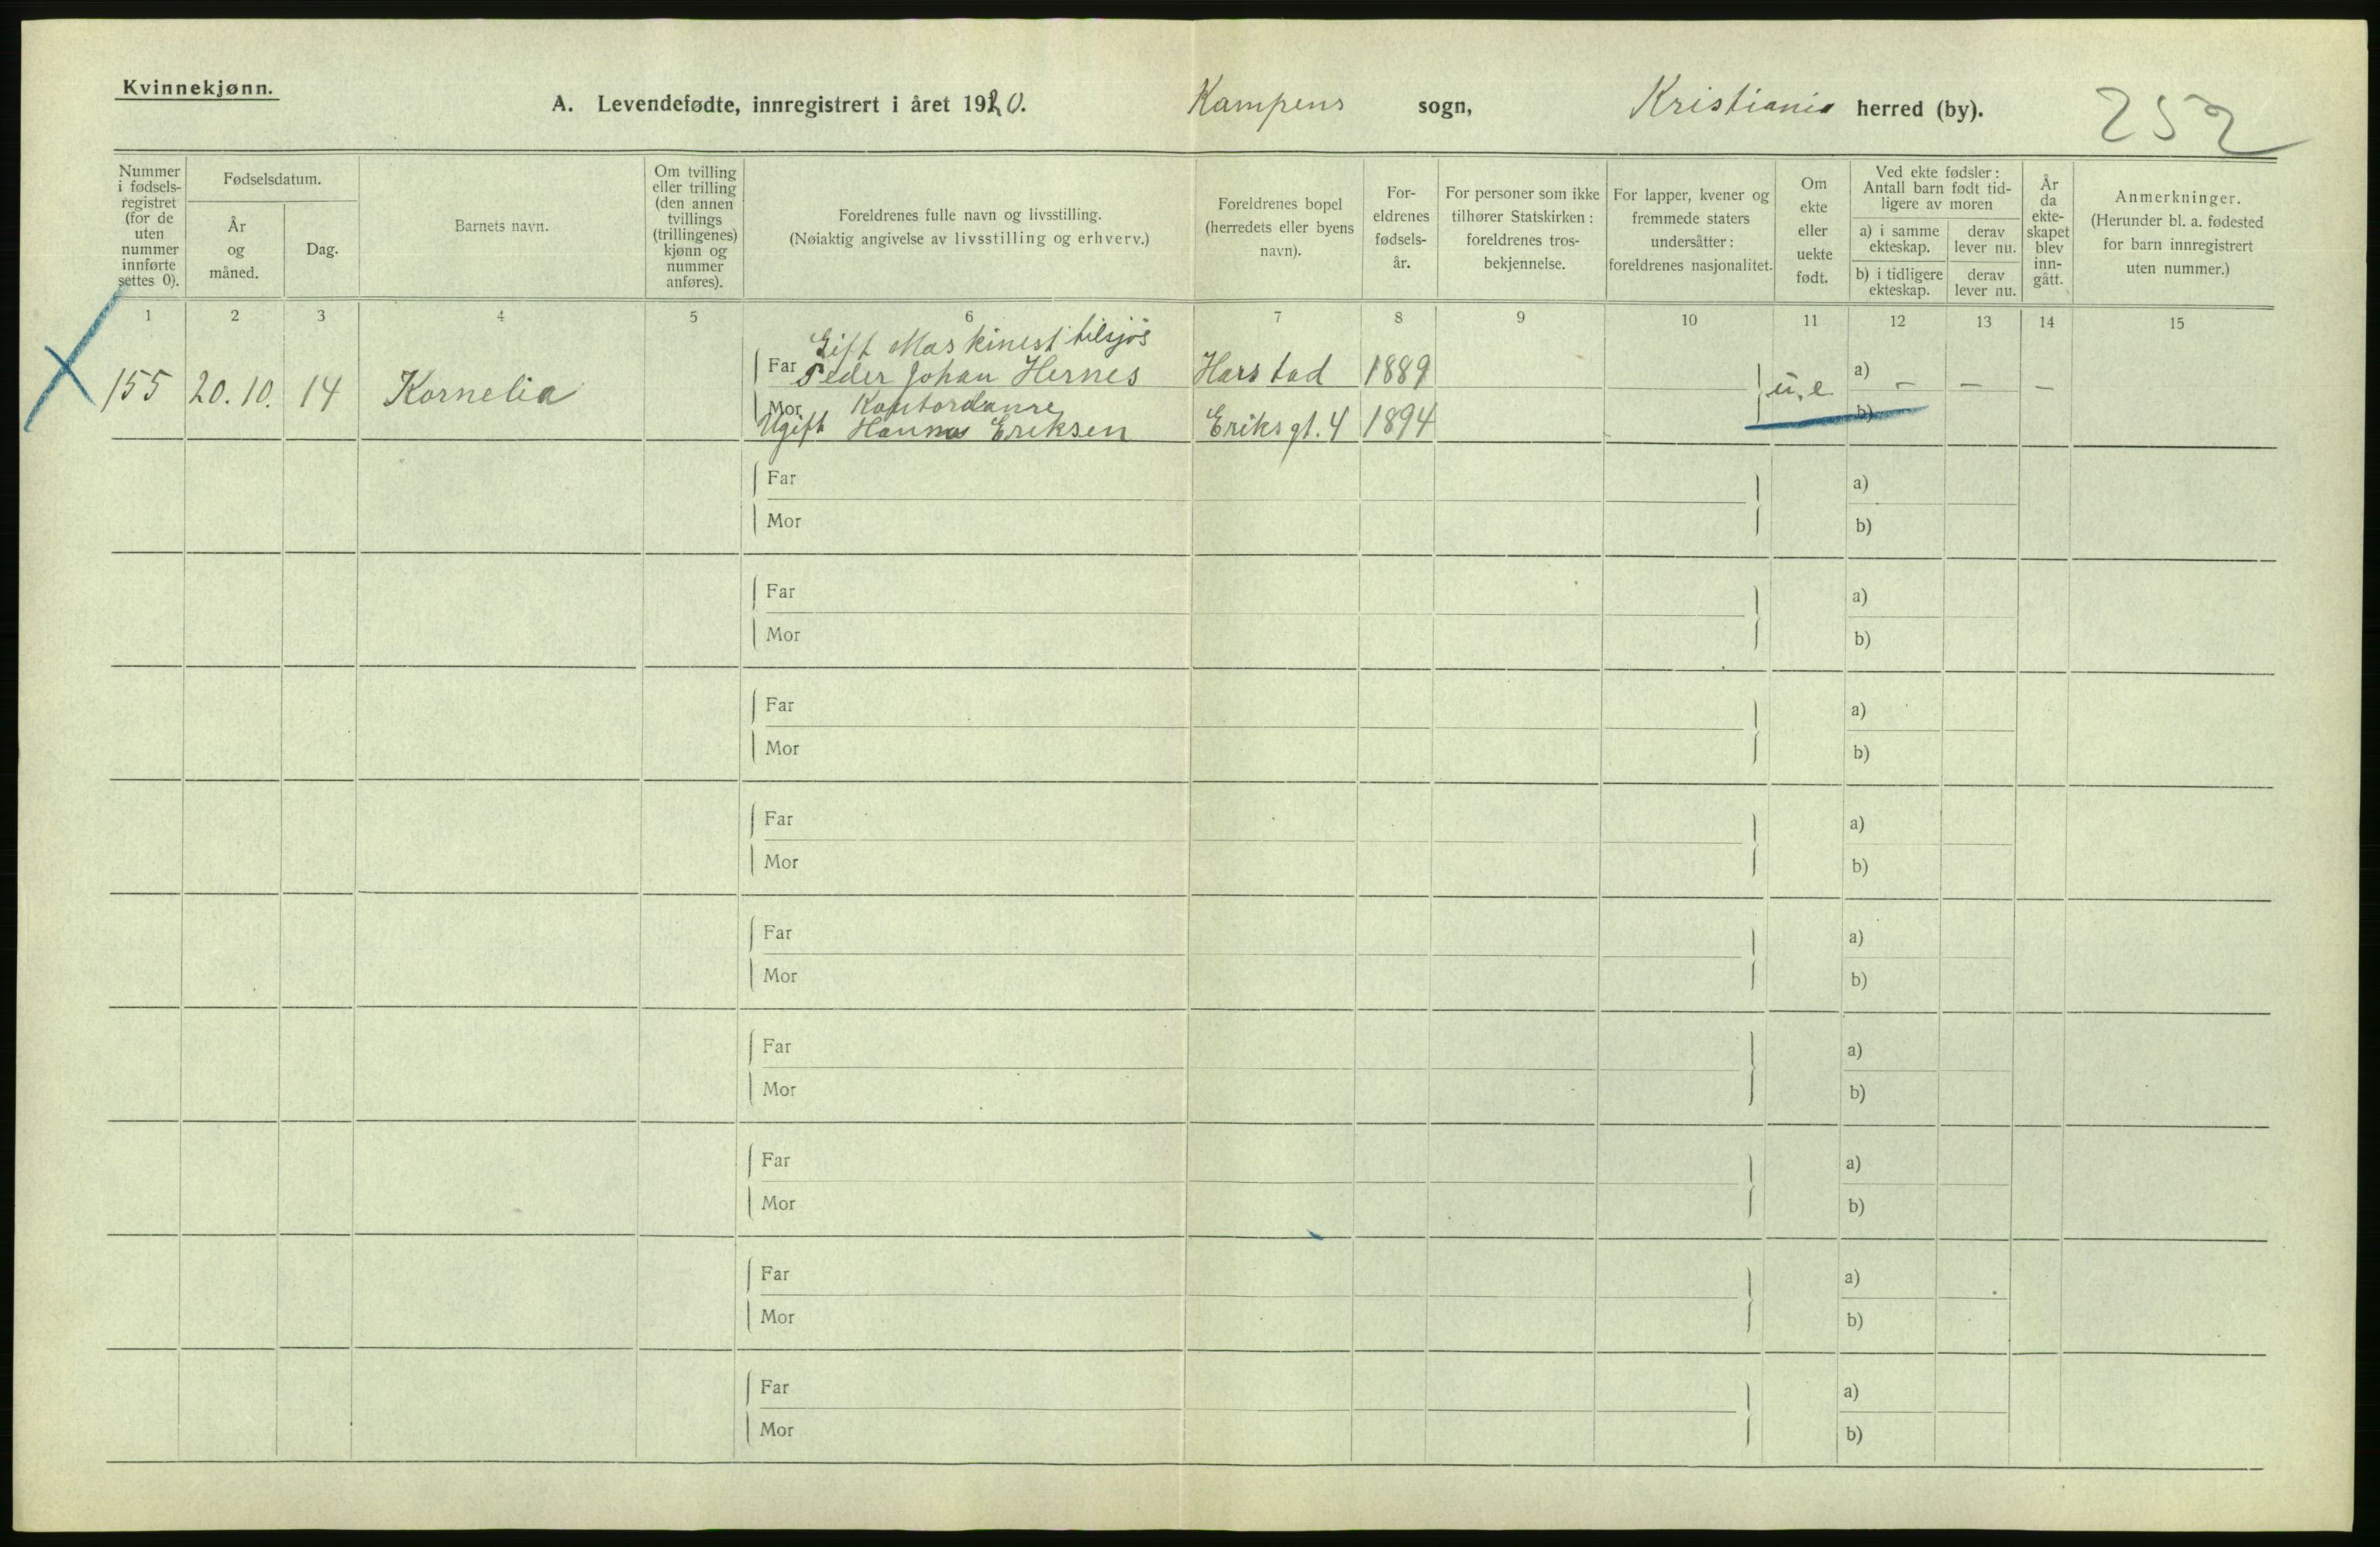 Kvinnekjønn.
A. Levendefødte, innregistrert i året 1920. Kampens sogn, Kristiania herred (by). 252
Nummer i fødselsregistret (for de uten nummer innførte settes 0).
Fødselsdatum.
År og måned.
Dag.
Barnets navn.
Om tvilling eller trilling (den annen tvillings (trillingenes) kjønn og nummer anføres).
Foreldrenes fulle navn og livsstilling.
(Nøiaktig angivelse av livsstilling og erhverv.)
Foreldrenes bopel (herredets eller byens navn).
Foreldrenes fødselsår.
For personer som ikke tilhører Statskirken: foreldrenes trosbekjennelse.
For lapper, kvener og fremmede staters undersåtter: foreldrenes nasjonalitet.
Om ekte eller uekte født.
Ved ekte fødsler: Antall barn født tidligere av moren
a) i samme ekteskap.
derav lever nu.
b) i tidligere ekteskap.
derav lever nu.
År da ekteskapet blev inngått.
Anmerkninger.
(Herunder bl. a. fødested for barn innregistrert uten nummer.)
1 2 3 4 5 6 7 8 9 10 11 12 13 14 15
Gift Maskinist tilsjøs
155 20.10. 14 Kornelia Far Peder Johan Hernes Harstad 1889 u.e a) — — —
Mor Kontordame b)
Ugift Hanna Eriksen Eriksgt. 4 1894
Far a)
Mor b)
Far a)
Mor b)
Far a)
Mor b)
Far a)
Mor b)
Far a)
Mor b)
Far a)
Mor b)
Far a)
Mor b)
Far a)
Mor b)
Far a)
Mor b)